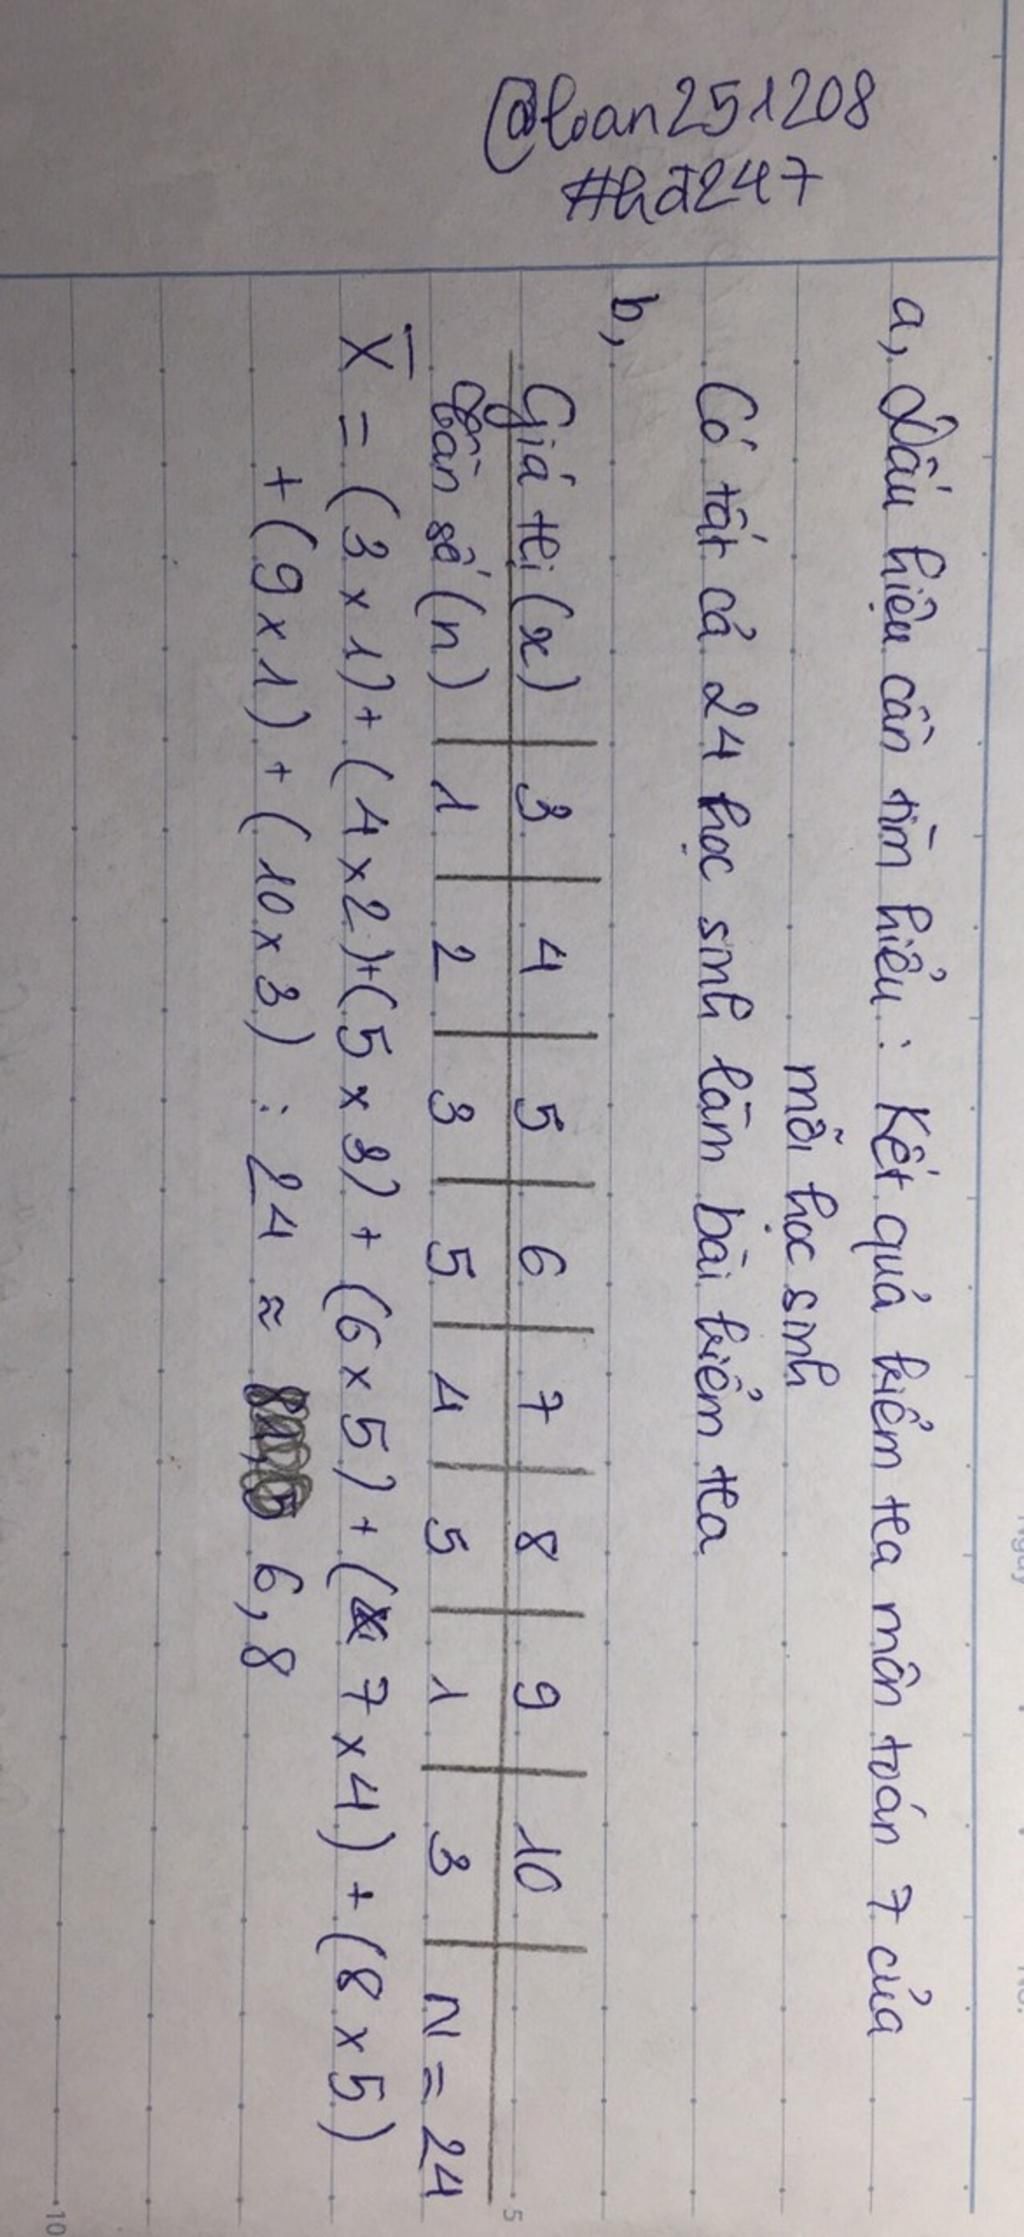 @loan251208
#hđ247
a, Dấu hiệu cần tìm hiểu : Kết quả kiểm tra môn toán 7 của
mỗi học sinh
Có tất cả 24 học sinh làm bài kiểm tra
b,
Giá trị (x) 3 4 5 6 7 8 9 10
Tần số (n) 1 2 3 5 4 5 1 3 N = 24
X̅ = (3 x 1) + (4 x 2) + (5 x 3) + (6 x 5) + (7 x 4) + (8 x 5)
+ (9 x 1) + (10 x 3) : 24 ≈ 6,8
5
10